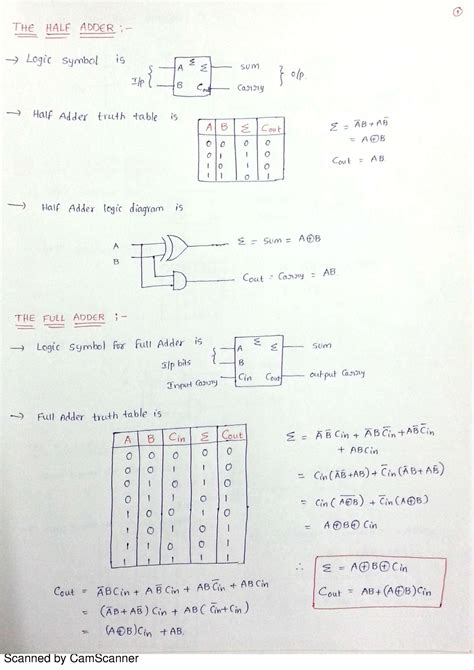 ①
THE HALF ADDER :-
→ Logic symbol is
I/p { A Σ Σ sum } o/p.
B Cout Carry
→ Half Adder truth table is
A B Σ Cout
0 0 0 0
0 1 1 0
1 0 1 0
1 1 0 1
Σ = A̅B + AB̅
= A⊕B
Cout = AB.
→ Half Adder logic diagram is
A
B
Σ = sum = A⊕B
Cout = Carry = AB.
THE FULL ADDER :-
→ Logic Symbol for Full Adder is
I/p bits { A Σ Σ sum
B
Input Carry Cin Cout output Carry
→ Full Adder truth table is
A B Cin Σ Cout
0 0 0 0 0
0 0 1 1 0
0 1 0 1 0
0 1 1 0 1
1 0 0 1 0
1 0 1 0 1
1 1 0 0 1
1 1 1 1 1
Σ = A̅B̅Cin + A̅BC̅in + AB̅C̅in
+ ABCin
= Cin(A̅B̅+AB) + C̅in(A̅B+AB̅)
= Cin(A̅⊕̅B̅) + C̅in(A⊕B)
= A⊕B⊕Cin
∴ Σ = A⊕B⊕Cin
Cout = AB+(A⊕B)Cin
Cout = A̅BCin + AB̅Cin + ABC̅in + ABCin
= (A̅B+AB̅)Cin + AB(C̅in+Cin)
= (A⊕B)Cin + AB.
Scanned by CamScanner